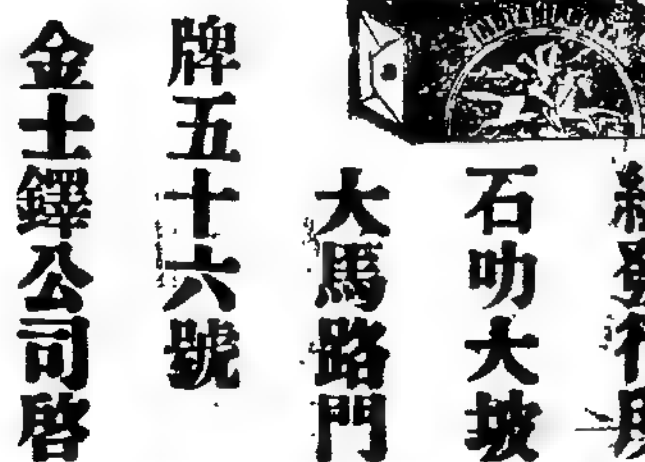 總發行所
石叻大坡
大馬路門
牌五十六號
金士鐸公司啓